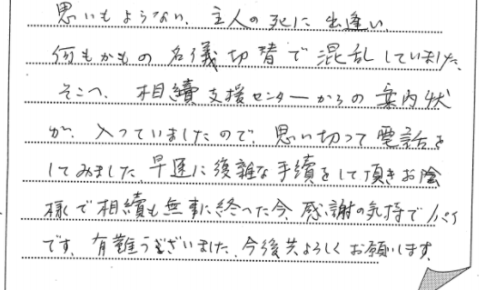 思いもようない、主人の死に出逢い、
何もかもの名義切替で混乱していました。
そこへ、相続支援センターからの案内状
が、入っていましたので、思い切って電話を
してみました。早速に複雑な手続をして頂きお陰
様で相続も無事に終へた今、感謝の気持で一パイ
です。有難うございました。今後共よろしくお願いします。